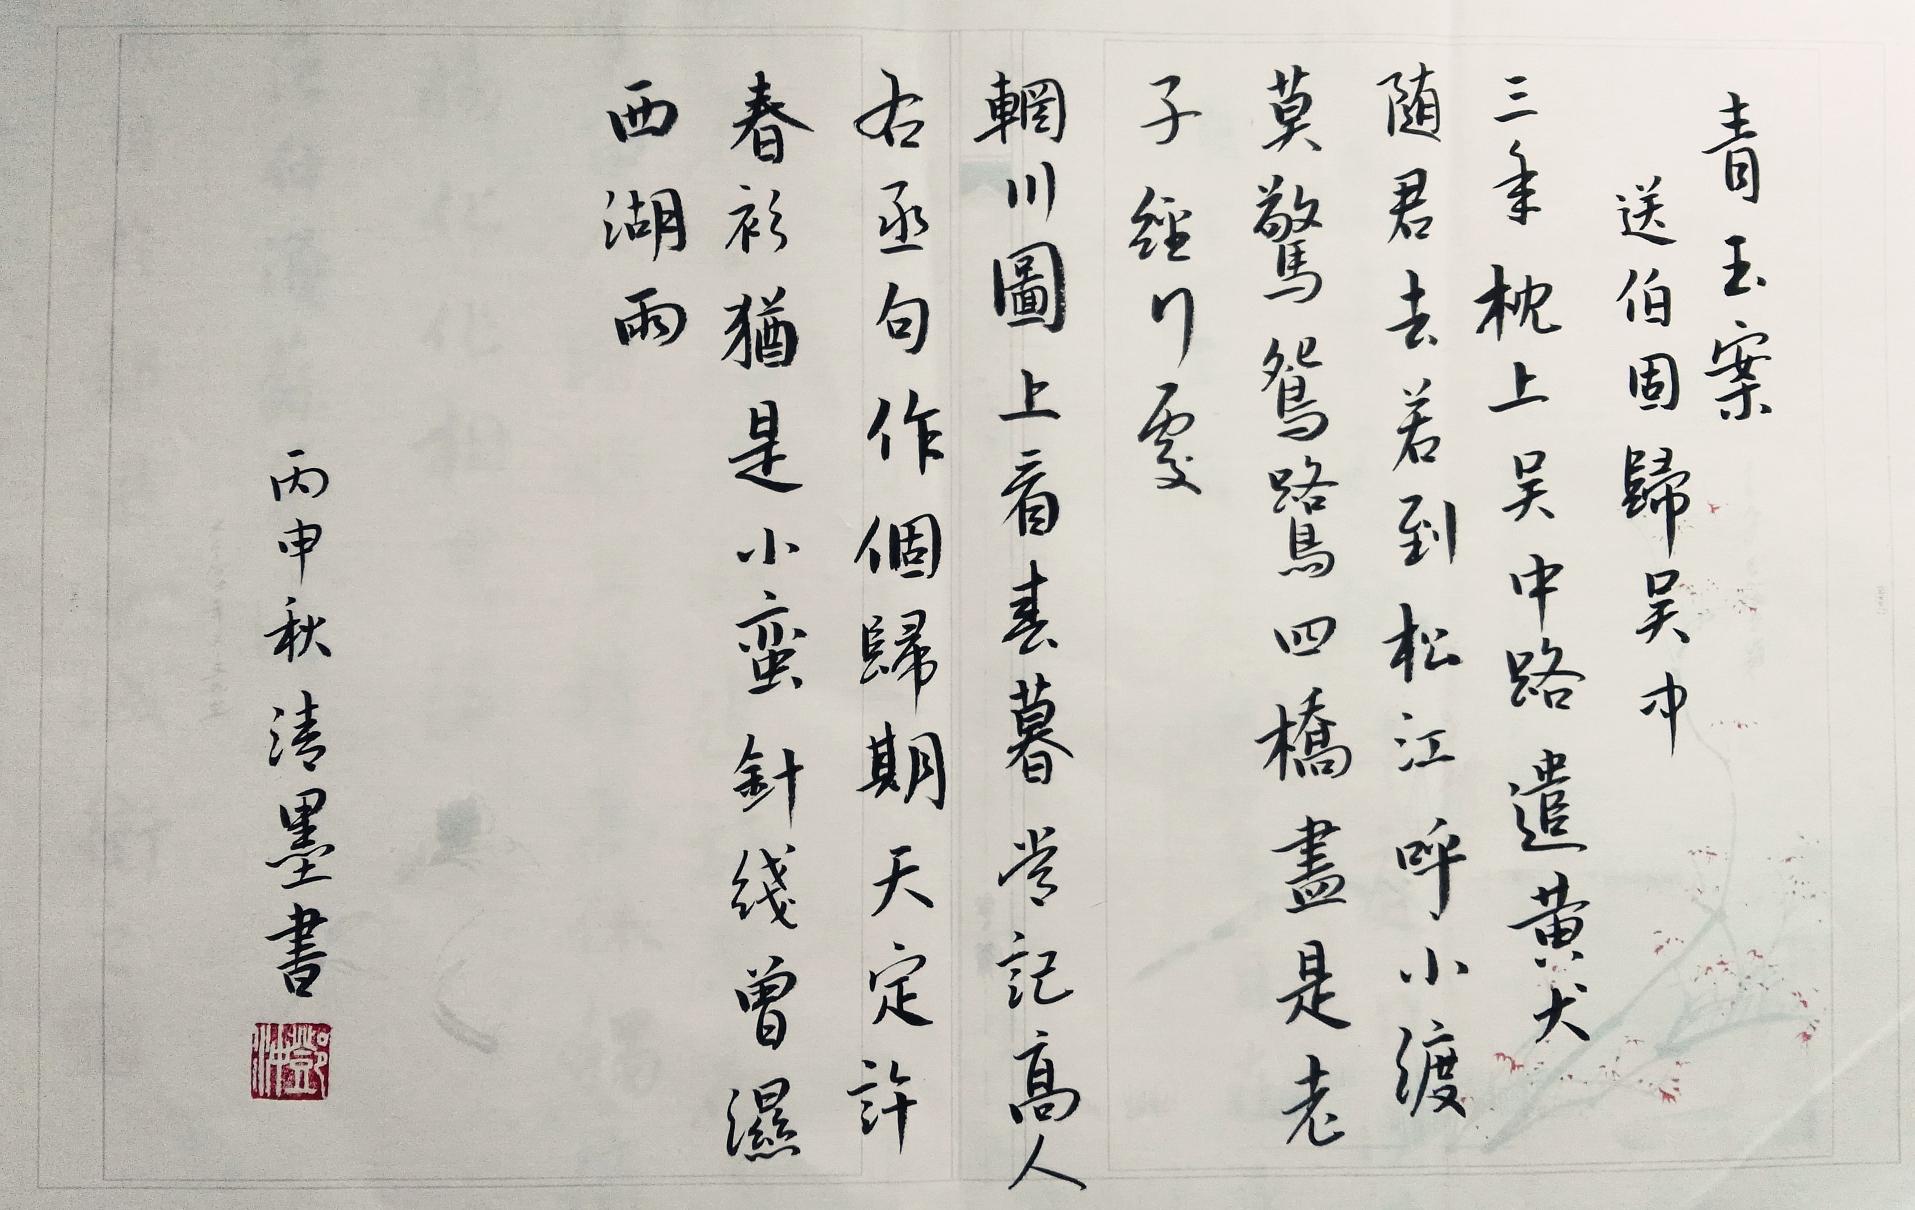 青玉案
送伯固歸吴中
三年枕上吴中路遣黄犬
随君去若到松江呼小渡
莫驚鴛鷺四橋盡是老
子經行處
輞川圖上看春暮常記高人
右丞句作個歸期天定許
春衫猶是小蛮針线曾濕
西湖雨
丙申秋清墨書